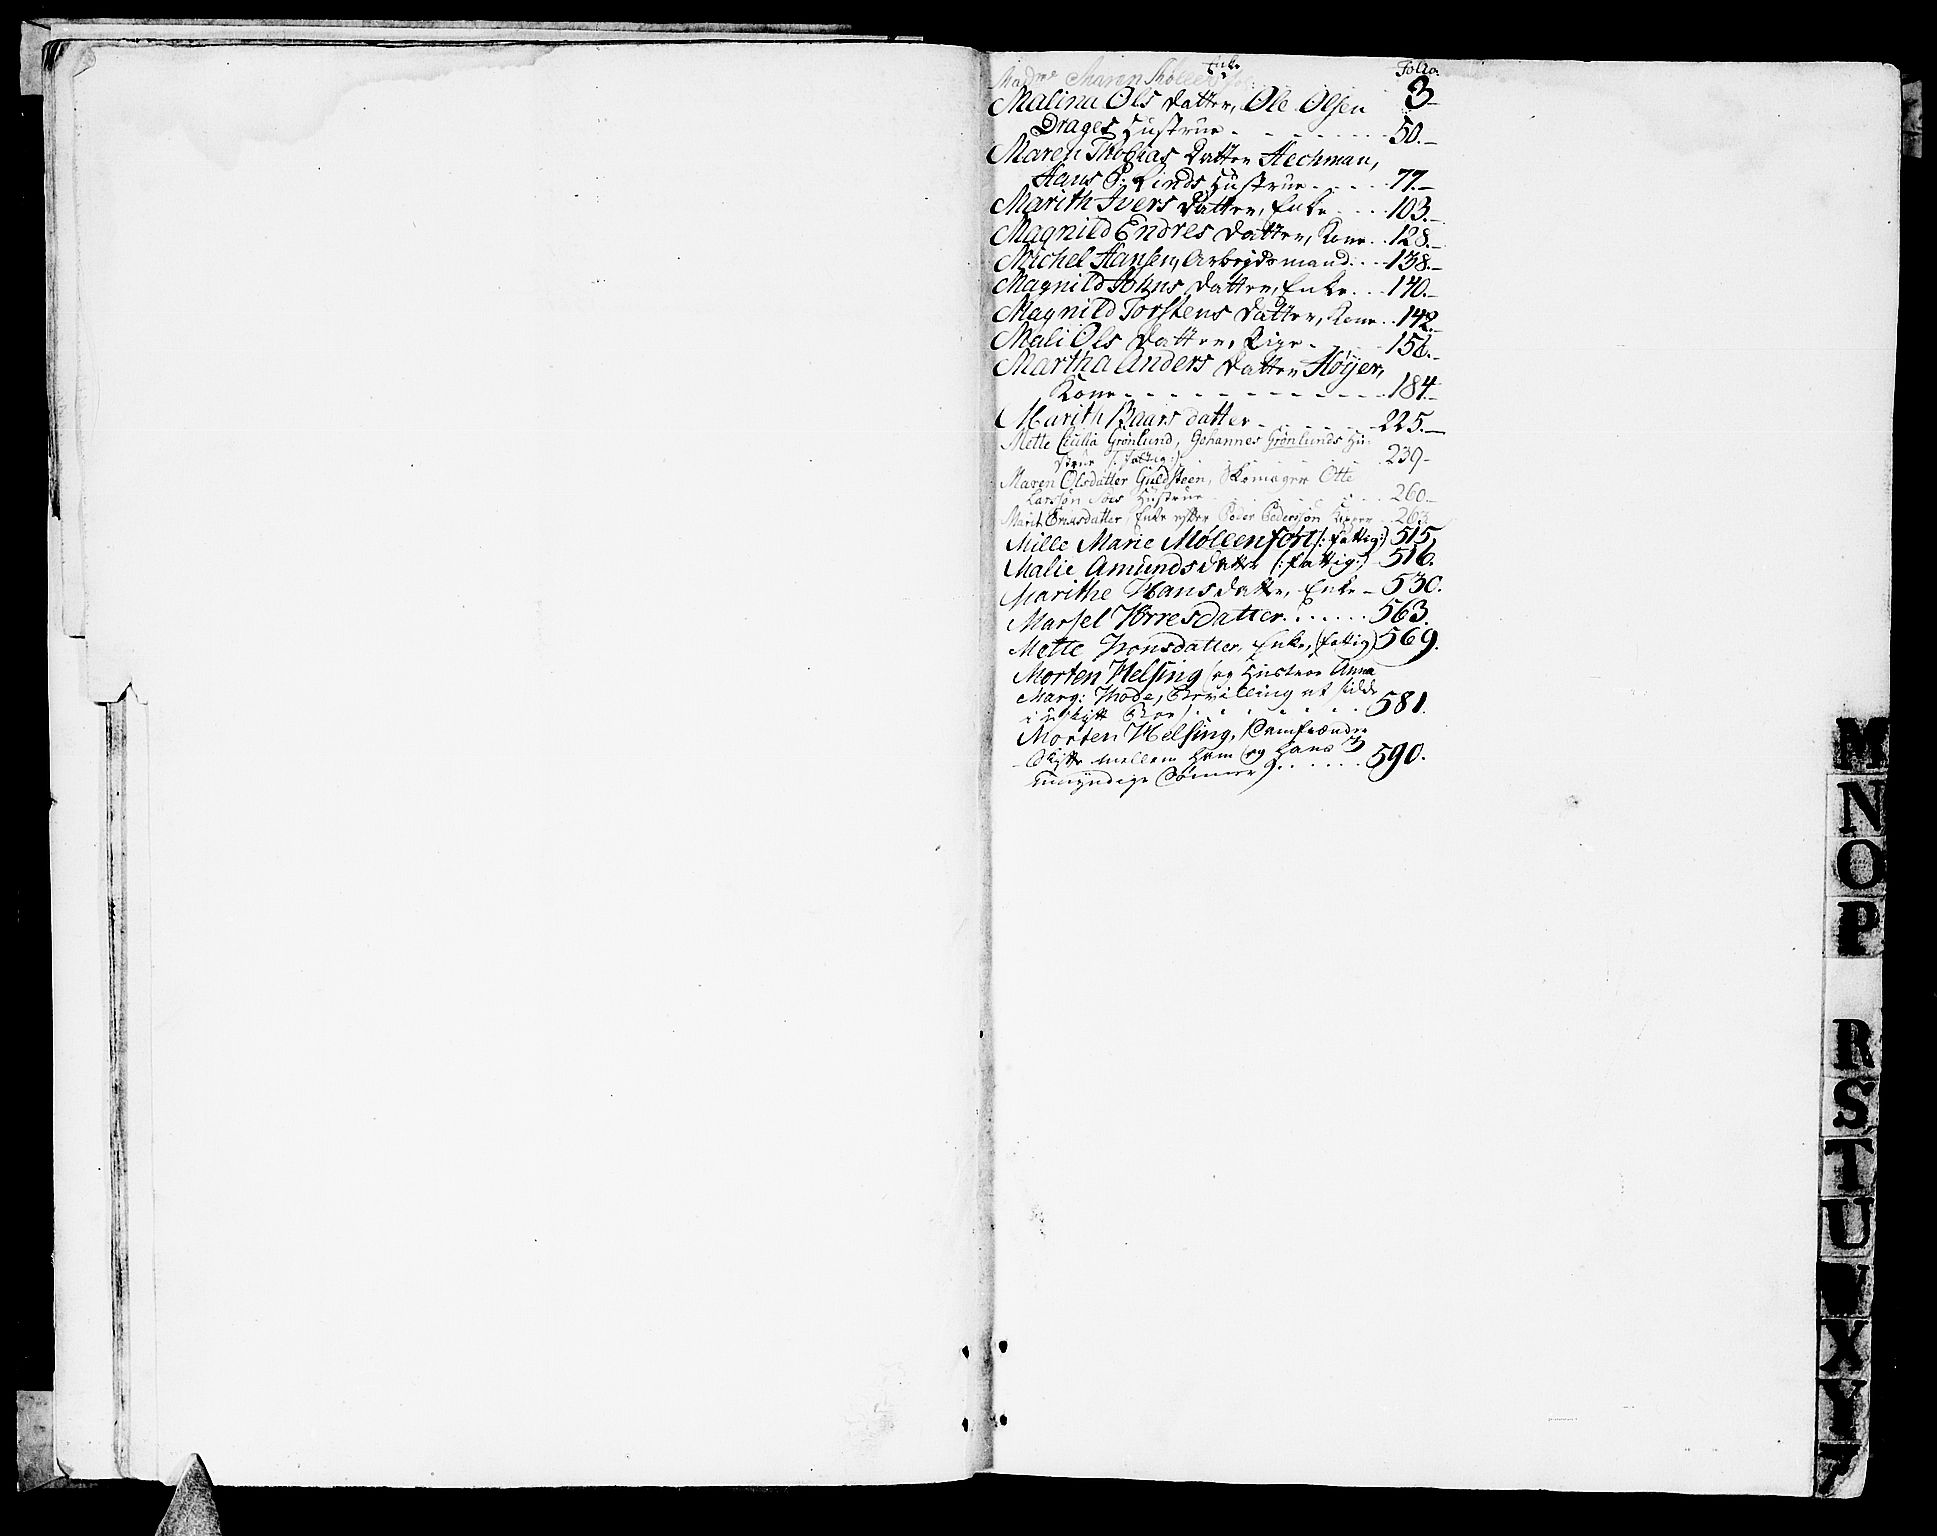 Enke
Madme Maren Møllers Folio.
3
Malina Ols datter, Ole Olsen
Drages Hustrue - - - - - - - 50.-
Maren Thobias datter Hechman,
Hans P: Linds Hustrue - - - - 77.-
Marith Ivers datter, Enke - - - 103.-
Magnild Endres datter, Kone . . 128.-
Michel Hansen, Arbeydsmand . . . 138.-
Magnild Johns datter, Enke . . . 140.-
Magnild Torstens datter, Kone . . 142.-
Mali Ols datter, Pige - - - 156.-
Martha Anders datter Høyer,
Kone - - - - - - - - - - - 184-
Marith Baars datter - - - - - 225.-
Mette Cicilia Grønlund, Johannes Grønlunds Hu-
strue (: fattig :) . . . . . 239-
Maren Olsdatter Guldsteen, Skomager Otte
Larssøn Hustrue . . . . . 260.-
Marit Ericsdatter, Enke efter Peder Pederssøn . . 263
Mille Marie Møllenfort (: fattig :) 515.
Malie Amundsdatter (: fattig :) - 516.
Marithe Hansdatter, Enke - 530.
Marsel Torresdatter . . . . . . 563.
Mette Tronsdatter, Enke, (fattig) 569.
Morten Helsing (og Hustrue Anna
Marg: Thode, Bevilling at sidde
i uskiftt Boe) . . . . . . . 581.
Morten Helsing, (Samfrænde
Skifte mellem ham og hans 3
umyndige Sønner) . . . . . . 590.
M
N
O
P
R
S
T
U
W
X
Y
Z